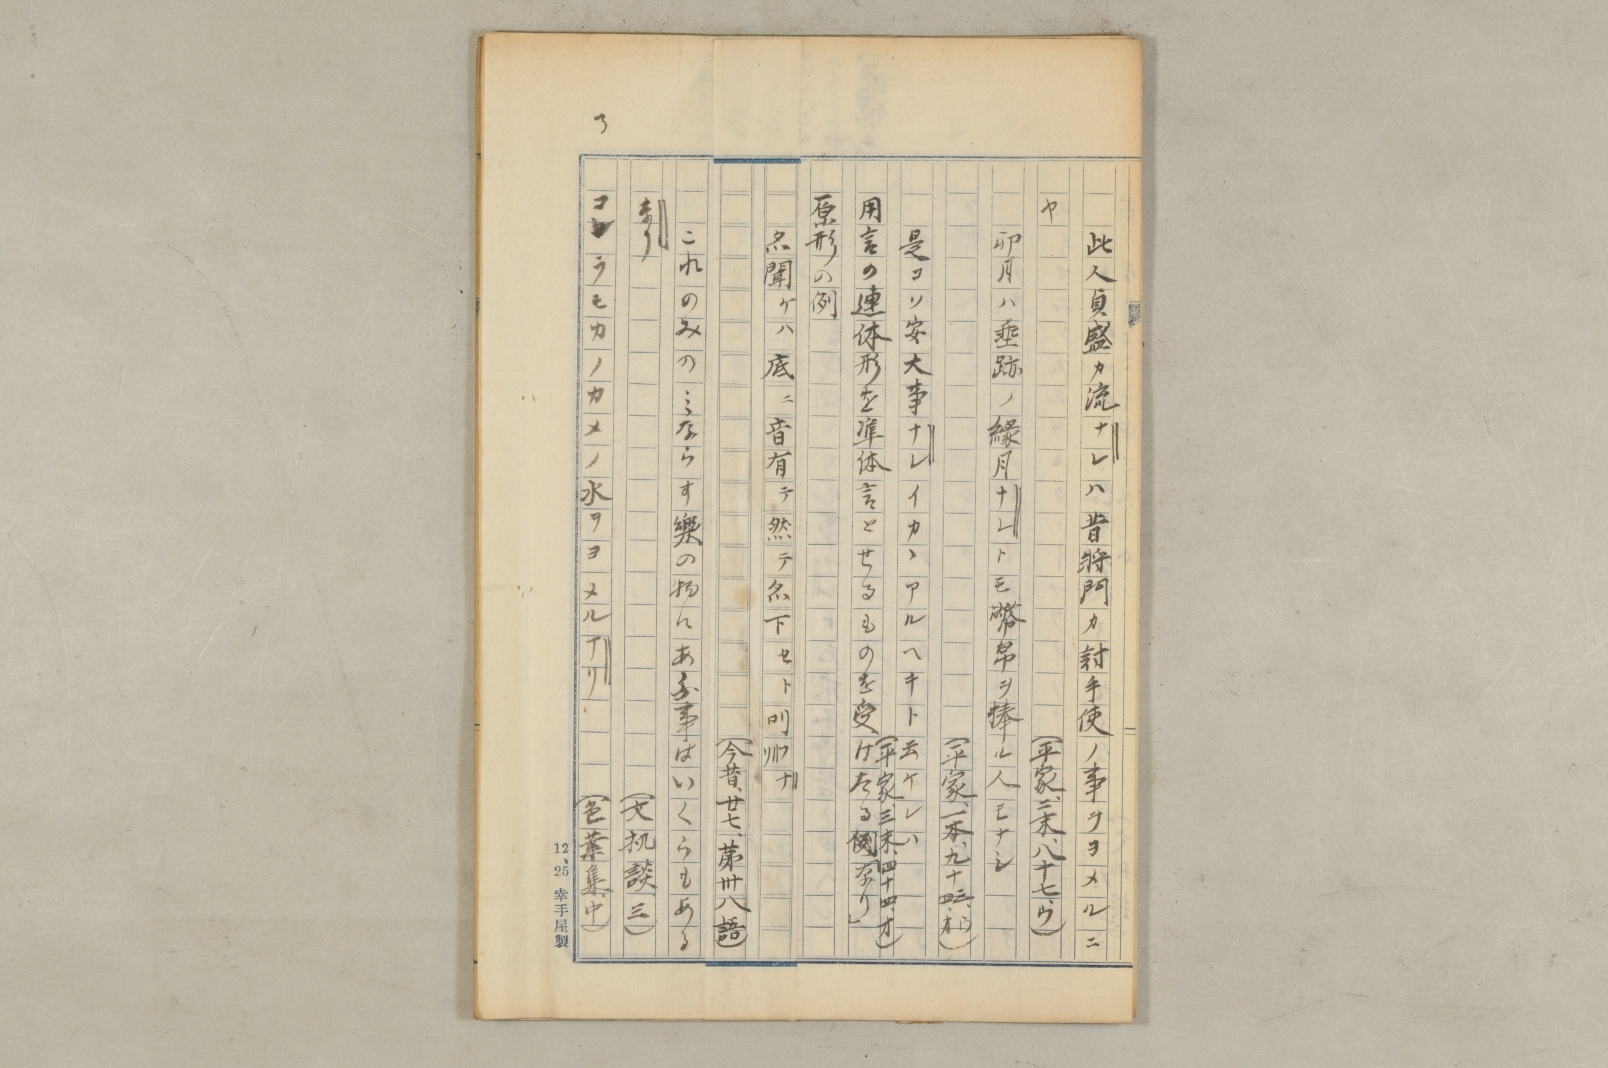 此人貞盛カ流ナレハ昔将門カ討手使ノ事ヲヨメルニ
ヤ
（平家、二末、八十七、ウ）
卯月ハ垂跡ノ縁月ナレトモ幣帛ヲ捧ル人モナシ
（平家、一本、九十
是コソ安大事ナレイカヽアルヘキト云ケレハ
（平家、三末、四十四、オ）
用言の連体形を準体言とせるものを受けたる例なり」
原形の例
名聞ケハ底ニ音有テ然テ名下セト叫ナ
（今昔、廿七、第卅八語）
これのみのみならす樂の物にあ事はいくらもある
まり
（文机談三）
コラモカノカメノ水ヲヨメルアリ
（色葉集、中）
12、25 幸手屋製